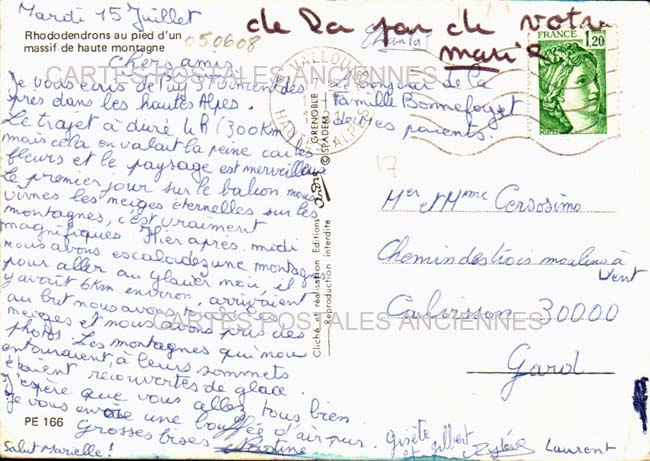 Mardi 15 Juillet
Rhododendrons au pied d'un
massif de haute montagne
050608
de la par de votre
marie
Chers amis
Je vous écris de Puy St Vincent des
près dans les hautes Alpes.
Le trajet à duré 4R (300km
mais cela en valait la peine car les
fleurs et le paysage est merveilleux
Le premier jour sur le balcon nous
vimes les neiges éternelles sur les
montagnes, c'est vraiment
magnifiques. Hier après-midi
nous avons escaladez une montagne
pour aller au glacier, il
y avait 6km environ, arrivaient
au but nous avons
neiges et nous avons pris des
photos. Les montagnes qui nous
entouraient à leurs sommets
étaient recouvertes de glace.
J'espère que vous allez tous bien
Je vous envoie une bouffée d'air pur.
Grosses bises
Salut Marielle!
PE 166
Chantal
Bonjour de la
Famille Bonnefoy et
de mes parents.
Gisèle
et Gilbert
Sylvie Laurent
VALLOUISE
HAUTES ALPES
FRANCE
1,20
POSTES
17
GRENOBLE
© SPADEM
Cliché et réalisation Editions
Reproduction interdite
Mer et Mme Cersosimo
Chemin des trois moulins à
Vent
Calvisson 30000
Gard
CARTES POSTALES ANCIENNES
CARTES POSTALES ANCIENNES